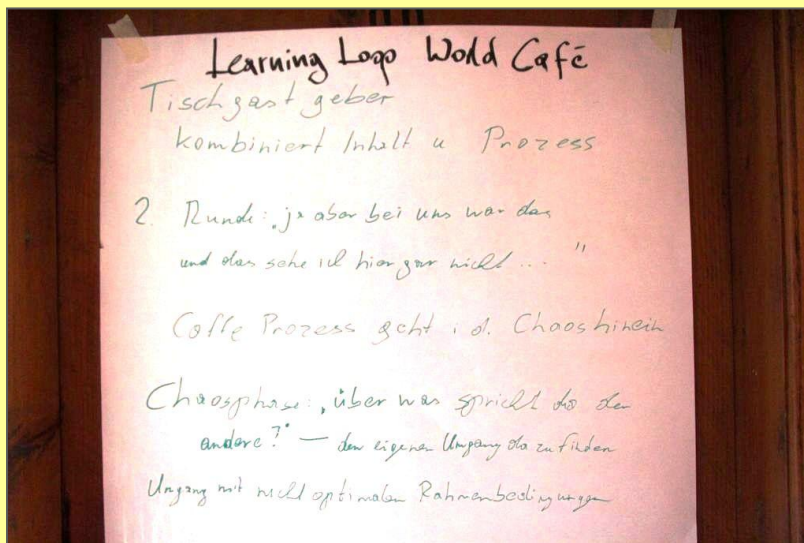 Learning Logo World Café
Tischgastgeber
kombiniert Inhalt u Prozess
2. Runde: „ja aber bei uns war das
und das sehe ich hier gar nicht ... "
Caffe Prozess geht i. d. Chaos hinein
Chaosphase: „über was spricht da der
andere?" — den eigenen Umgang da zu finden
Umgang mit nicht optimalen Rahmenbedingungen